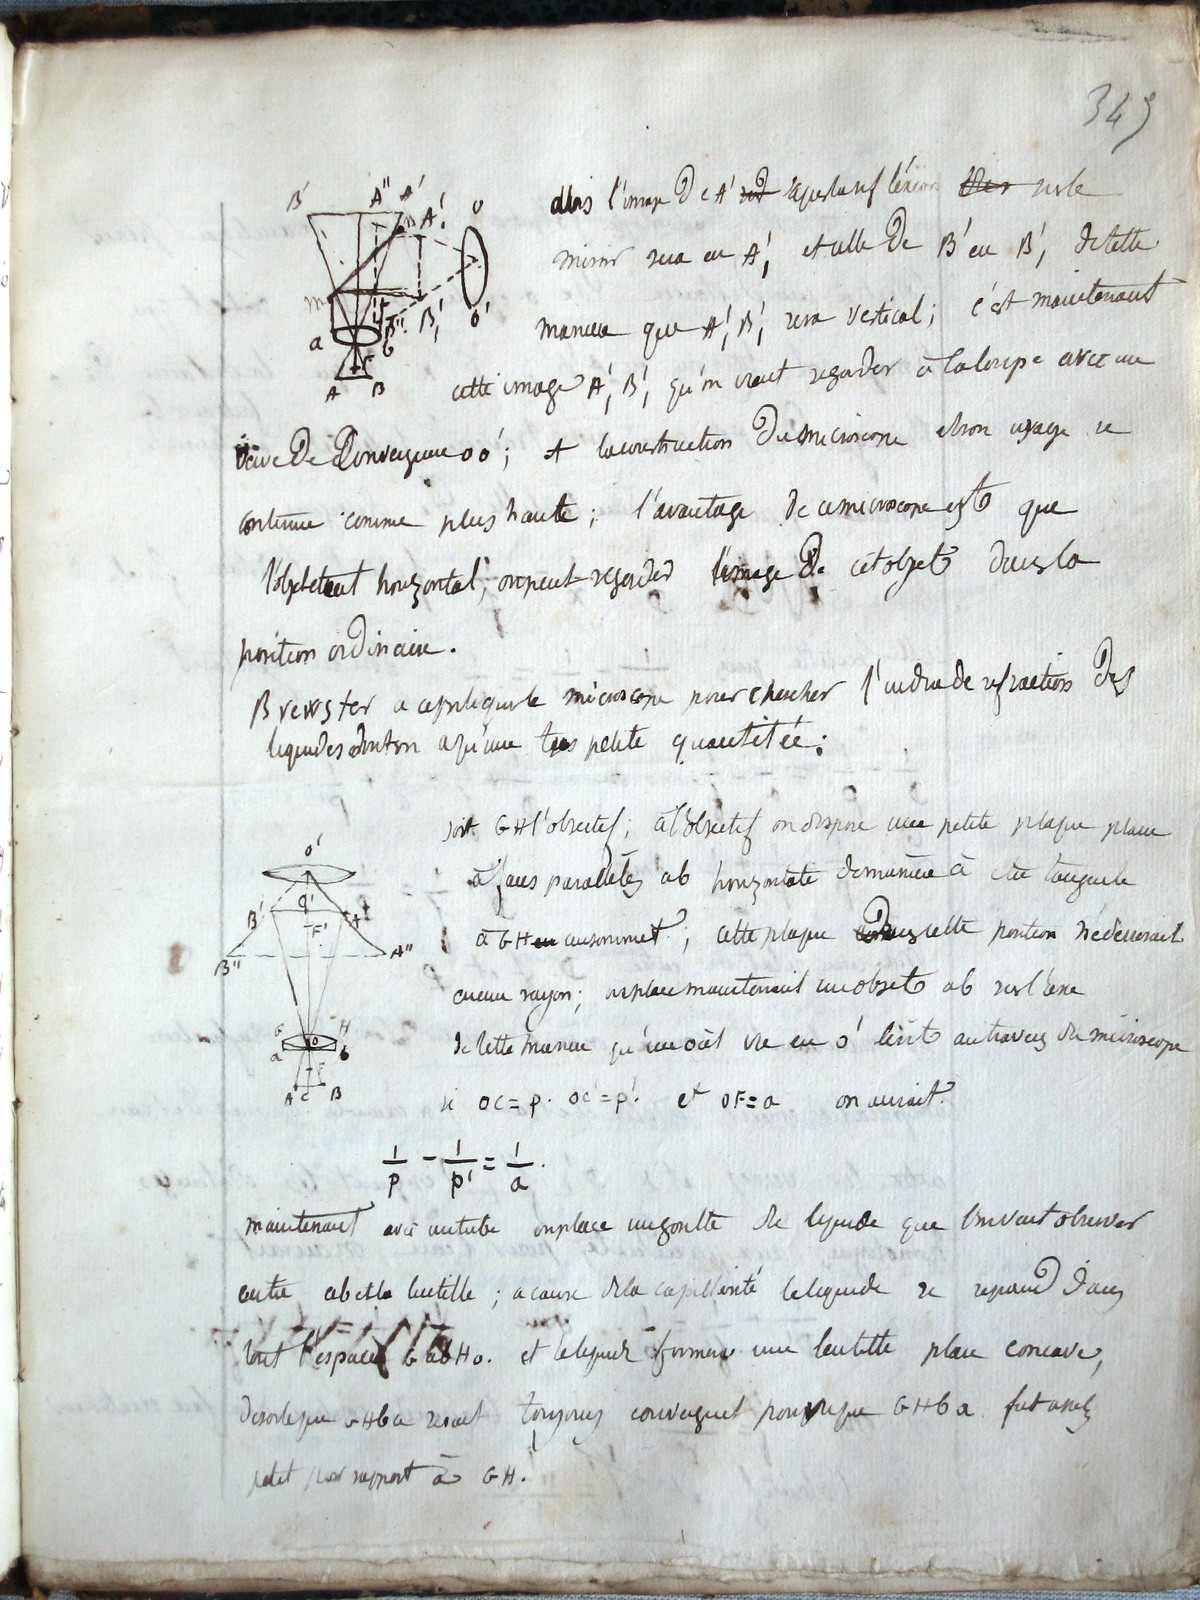 345
B' A'' A' A'₁ O
m n
a b A'' B'₁ O'
F
A B
alors l'image de A' sur le
miroir sera en A'₁ et celle de B' en B'₁ de cette
maniere que A'₁B'₁ sera vertical ; c'est maintenant
cette image A'₁B'₁ qu'on vient regarder à la loupe avec un
verre de Convergeune oo' ; et la construction du microscope et son usage se
continue comme plus haute ; l'avantage de ce microscope est que
l'objet etant horizontal, on peut regarder l'image de cet objet dans la
position ordinaire.
Brewster a appliqué le microscope pour chercher l'indice de refraction des
liquides dont on a qu'une tres petite quantitée :
soit GH l'objectif ; à l'objectif on dispose une petite plaque plane
à faces paralleles ab horizontale de maniere à etre tangente
à GH au sommet ; cette plaque dans cette position ne devierait
aucun rayon ; on place maintenant un objet ab sur l'axe
de cette maniere qu'un oeil vu en o' le vit au travers du microscope
si OC = p. OC' = p'. et OF = a on aurait.
O'
B' C' A'
F'
B'' A''
G O H
a b
F
A C B
1/p - 1/p' = 1/a.
maintenant avec un tube on place un goutte de liquide que l'on veut observer
entre ab et la lentille ; a cause de la capillarité le liquide se repand dans
tout l'espace G ab H o. et le liquide formera une lentille plan concave,
de sorte que GHba serait toujours convergent pourvu que GHba fut assez
petit par rapport à GH.